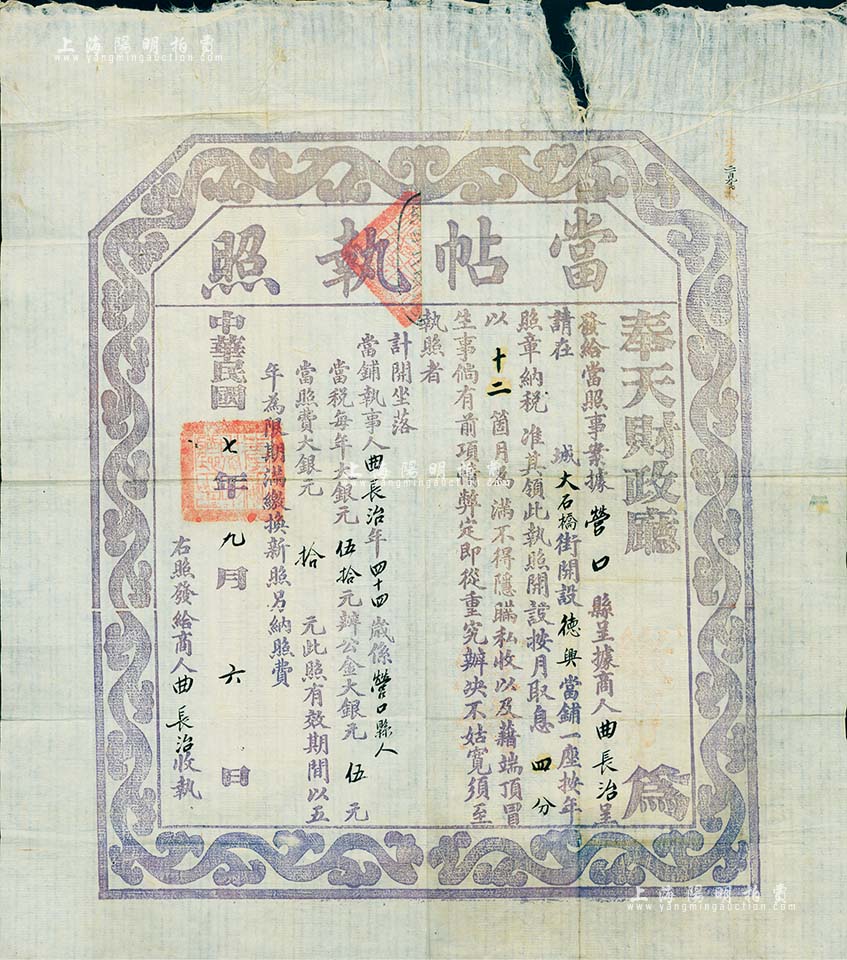 上海陽明拍賣
www.yangmingauction.com
當帖執照
奉天財政廳為
發給當照事案據營口縣呈據商人曲長治呈
請在城大石橋街開設德興當鋪一座按年
照章納稅准其領此執照開設按月取息四分
以十二箇月為滿不得隱瞞私收以及藉端頂冒
生事倘有前項情弊定即從重究辦決不姑寬須至
執照者
計開坐落
當鋪執事人曲長治年四十四歲係營口縣人
當稅每年大銀元伍拾元辦公金大銀元伍元
當照費大銀元拾元此照有效期間以五
年為限期滿繳換新照另納照費
中華民國七年九月六日
右照發給商人曲長治收執
上海陽明拍賣
www.yangmingauction.com
上海陽明拍賣
www.yangmingauction.com